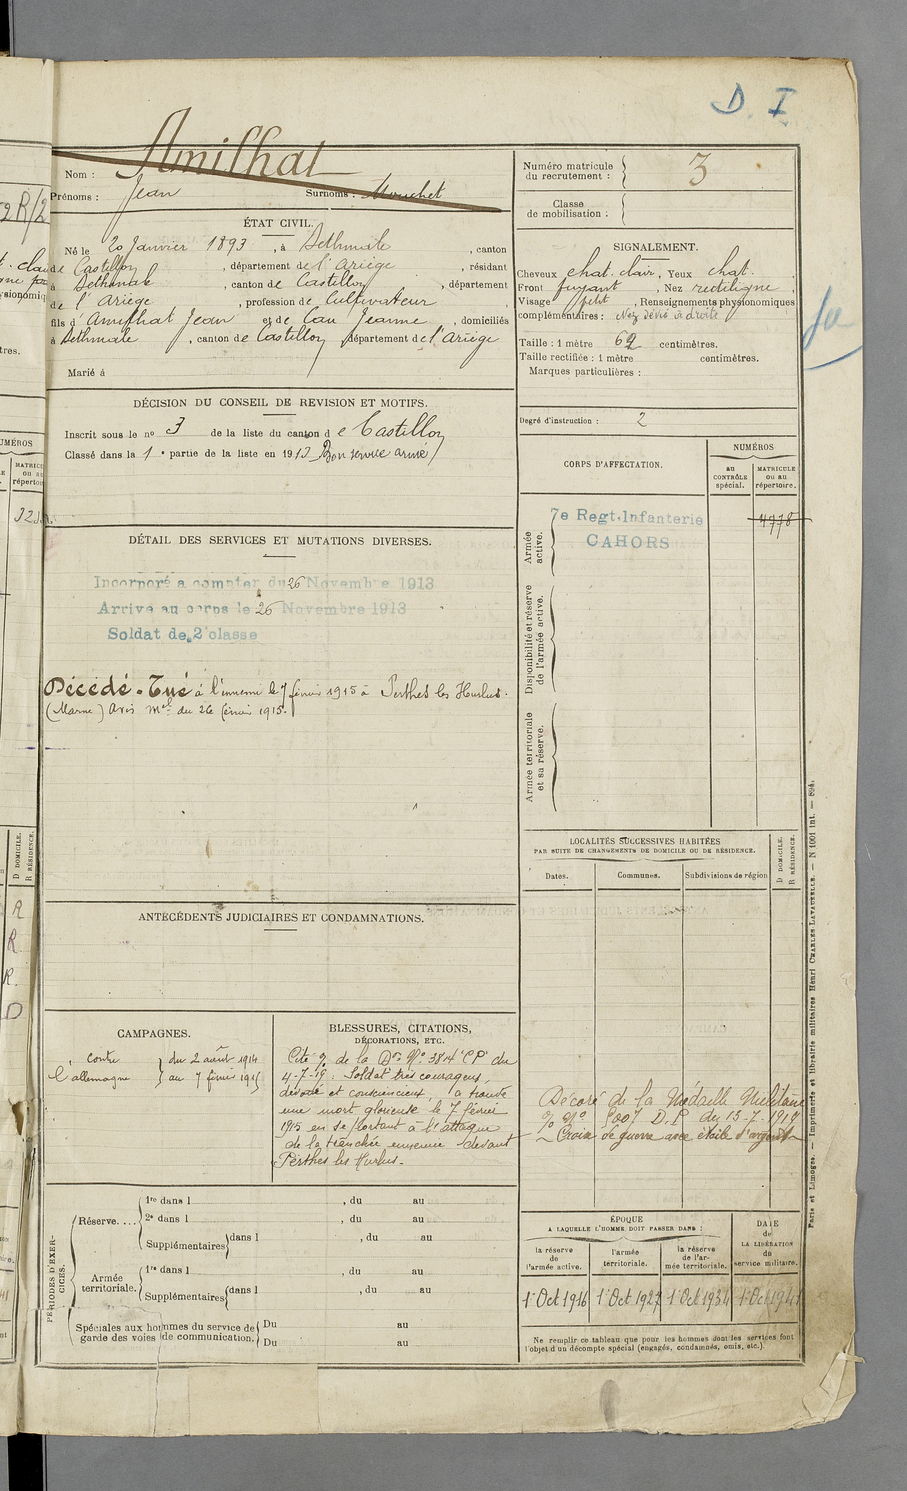 D. I
Nom : Amilhat
Prénoms : Jean Surnoms : Mouchet
Numéro matricule
du recrutement : 3
Classe
de mobilisation :
ÉTAT CIVIL.
Né le 20 Janvier 1893, à Sethmale, canton
de Castillon, département de l'Ariège, résidant
à Bethmale, canton de Castillon, département
de l'Ariège, profession de Cultivateur
fils d'Amilhat Jean et de Cau Jeanne, domiciliés
à Bethmale, canton de Castillon département de l'Ariège
Marié à
SIGNALEMENT.
Cheveux chat. clair, Yeux chat.,
Front fuyant, Nez rectiligne,
Visage petit, Renseignements physionomiques
complémentaires : Nez dévié à droite
Taille : 1 mètre 62 centimètres.
Taille rectifiée : 1 mètre centimètres.
Marques particulières :
Degré d'instruction : 2
DÉCISION DU CONSEIL DE REVISION ET MOTIFS.
Inscrit sous le no 3 de la liste du canton de Castillon
Classé dans la 1e partie de la liste en 1913 Bon service armé
CORPS D'AFFECTATION.
NUMÉROS
au
CONTRÔLE
spécial.
MATRICULE
ou au
répertoire.
Armée
active.
7e Regt. Infanterie
CAHORS
4778
Disponibilité et réserve
de l'armée active.
Armée territoriale
et sa réserve.
DÉTAIL DES SERVICES ET MUTATIONS DIVERSES.
Incorporé a compter du 26 Novembre 1913
Arrivé au corps le 26 Novembre 1913
Soldat de 2e classe
Décédé - Tué à l'ennemi le 7 février 1915 à Perthes les Hurlus.
(Marne) Avis Mel du 26 février 1915.
LOCALITÉS SUCCESSIVES HABITÉES
PAR SUITE DE CHANGEMENTS DE DOMICILE OU DE RÉSIDENCE.
Dates. Communes. Subdivisions de région
D DOMICILE.
R RÉSIDENCE.
ANTÉCÉDENTS JUDICIAIRES ET CONDAMNATIONS.
CAMPAGNES.
contre } du 2 août 1914
l'allemagne } au 7 février 1915
BLESSURES, CITATIONS,
DÉCORATIONS, ETC.
Cité % de la Don No 3814 "CP" du
4-7-19 : Soldat très courageux,
dévoué et consciencieux, a trouvé
une mort glorieuse le 7 février
1915 en se portant à l'attaque
de la tranchée ennemie devant
Perthes les Hurlus.
Décoré de la Médaille Militaire
% No D. P du 13-7-1919
Croix de guerre avec étoile d'argent
PÉRIODES D'EXERCICES.
Réserve....
1re dans l , du au
2e dans l , du au
Supplémentaires dans l , du au
Armée
territoriale.
1re dans l , du au
Supplémentaires dans l , du au
Spéciales aux hommes du service de
garde des voies de communication.
Du au
Du au
ÉPOQUE
A LAQUELLE L'HOMME DOIT PASSER DANS :
DATE
de
LA LIBÉRATION
du
service militaire.
la réserve
de
l'armée active.
l'armée
territoriale.
la réserve
de l'ar-
mée territoriale.
1er Oct 1916 1er Oct 1927 1er Oct 1934 1er Oct 1941
Ne remplir ce tableau que pour les hommes dont les services font
l'objet d'un décompte spécial (engagés, condamnés, omis, etc.)
Paris et Limoges. — Imprimerie et librairie militaires Henri CHARLES-LAVAUZELLE. — N 1001 int. — 894.